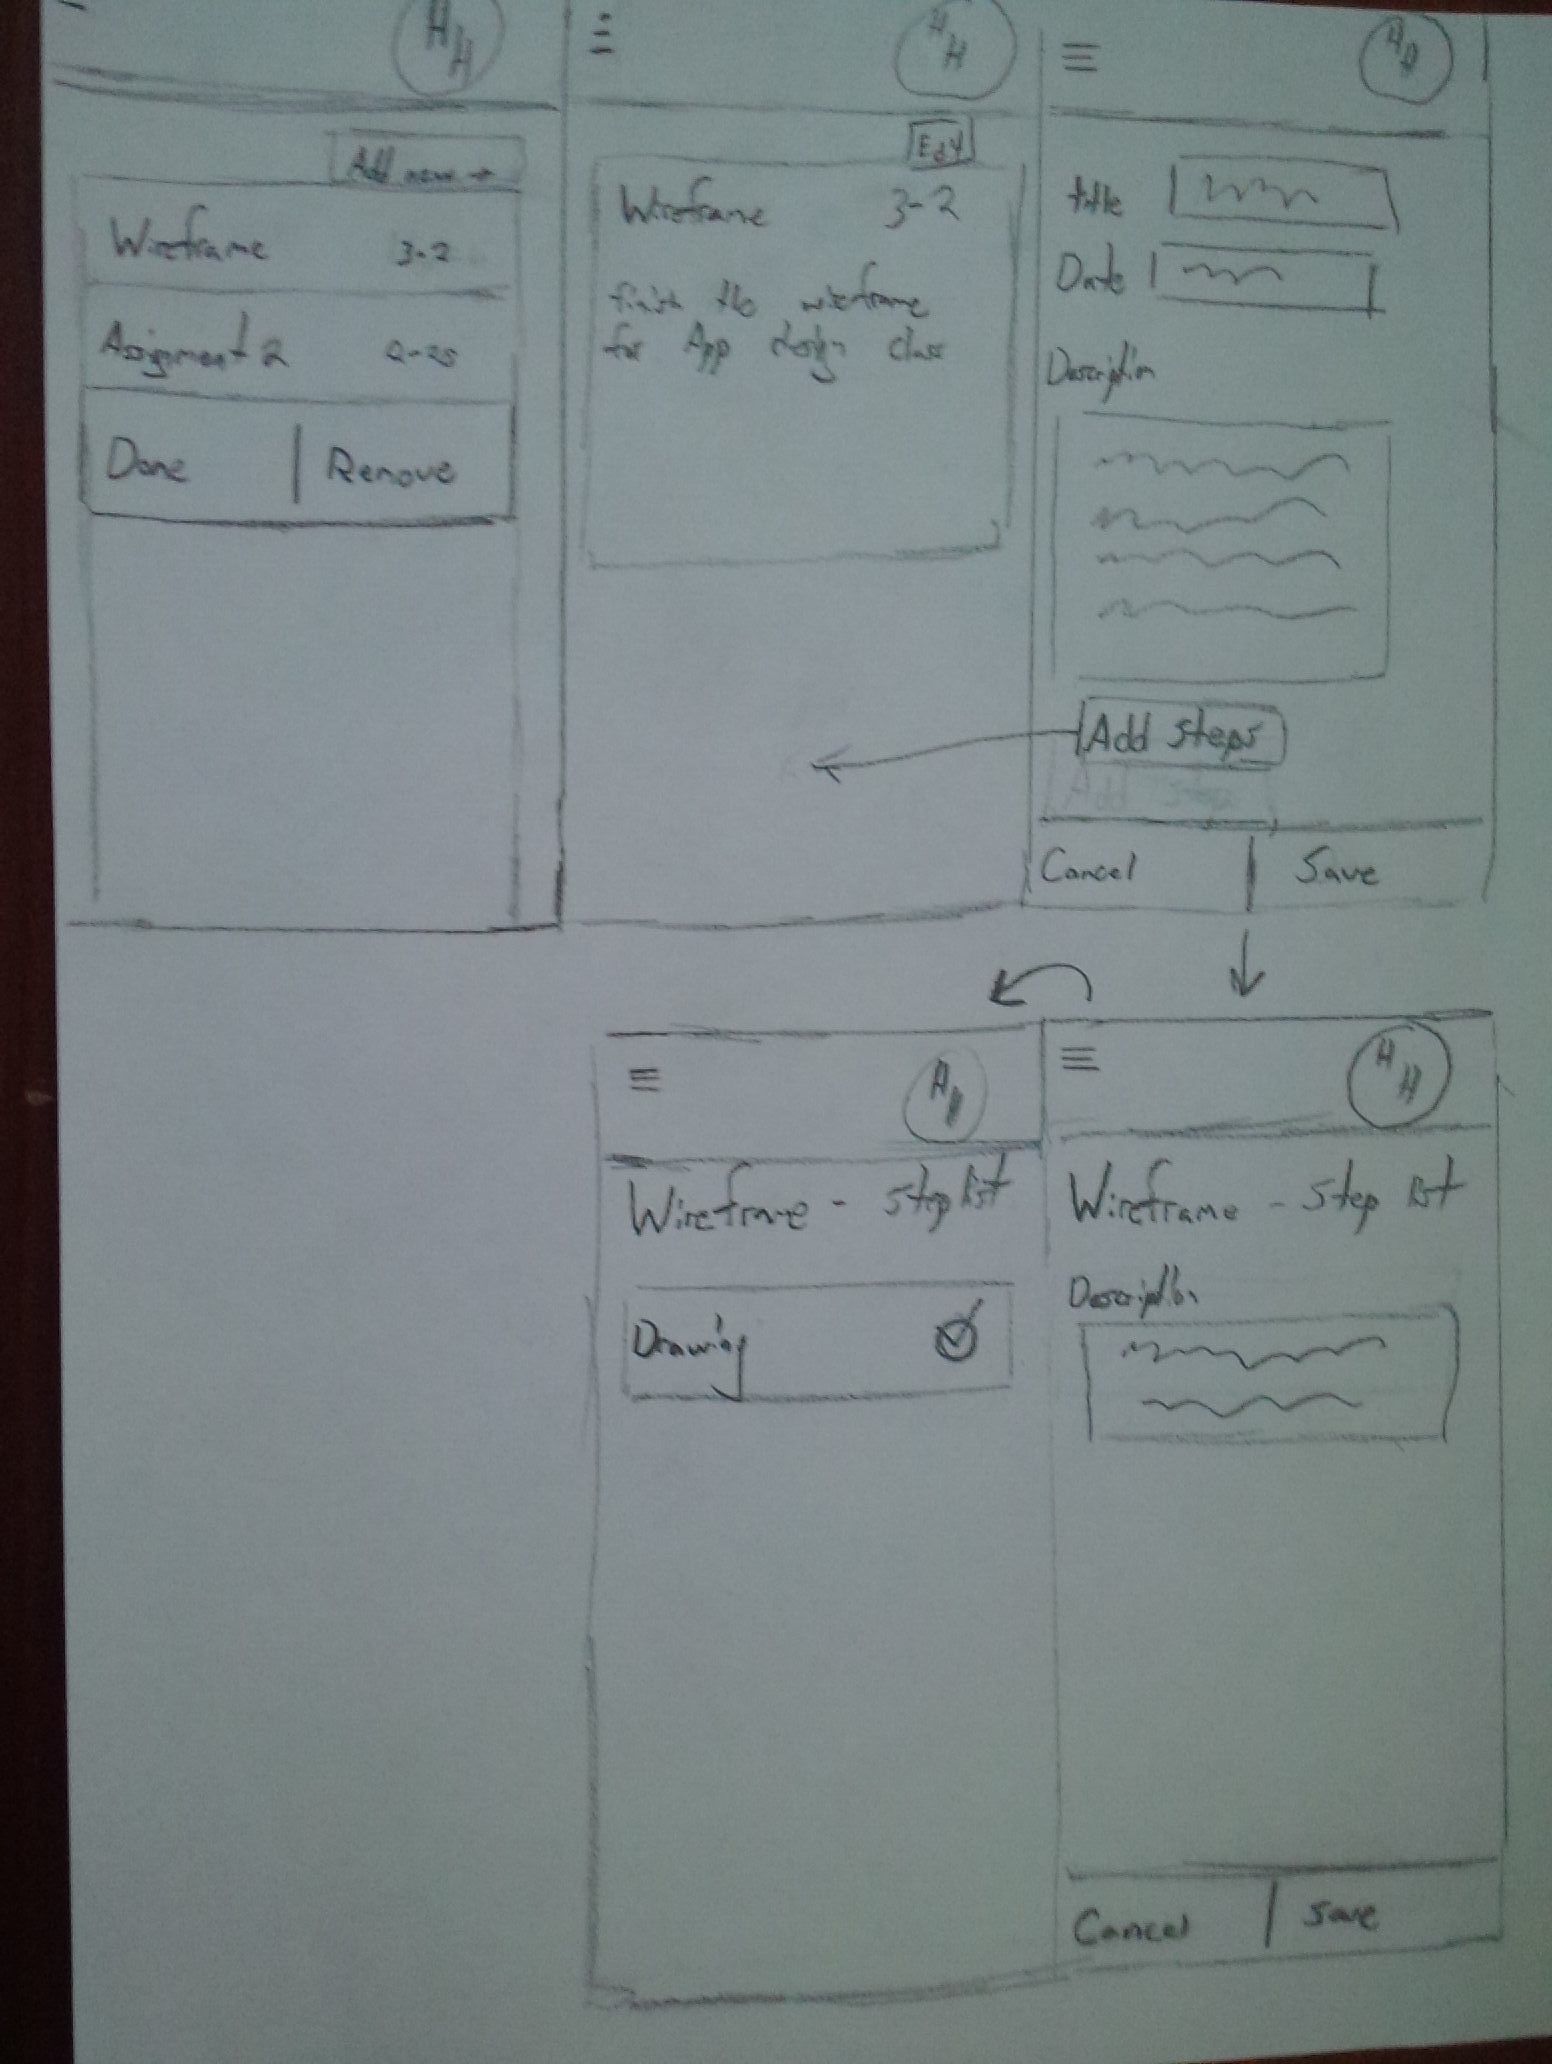 H H
Add new →
Wireframe 3-2
Assignment 2 2-25
Done | Remove
H H
Edit
Wireframe 3-2
finish the wireframe
for App design class
H H
title
Date
Description
Add steps
Add steps
Cancel | Save
H H
Wireframe - step list
Drawing
H H
Wireframe - step list
Description
Cancel | Save